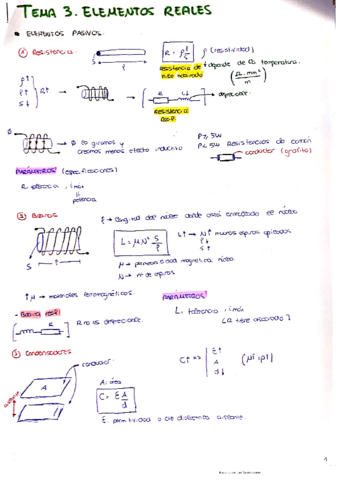 TEMA 3. ELEMENTOS REALES
ELEMENTOS PASIVOS
① Resistencia
R = ρ l/S
ρ (resistividad)
depende de la temperatura.
Resistencia de
hilo
(Ω·mm²/m)
ρ↑
l↑ R↑
S↓
R
despreciable
Resistencia
Real
creamos menos efecto inductivo
P≥5W
P<5W Resistencias de carbón
conductor (grafito)
PARÁMETROS (especificaciones)
R, tolerancia, imáx
potencia
② Bobinas
l → longitud del núcleo donde está enrollado el núcleo
L = μN² S/l
L↑ → N↑ muchas espiras apiladas
l↓
S↑
μ → permeabilidad magnética núcleo
N → nº de espiras
↑μ → materiales ferromagnéticos.
PARÁMETROS
Bobina real
L, tolerancia, imáx
R no es despreciable.
③ Condensadores
conductor
A
A: área
C = ε A/d
C↑ =>
ε↑
A
d↓
ε: permitividad o cte dieléctrica aislante.
1